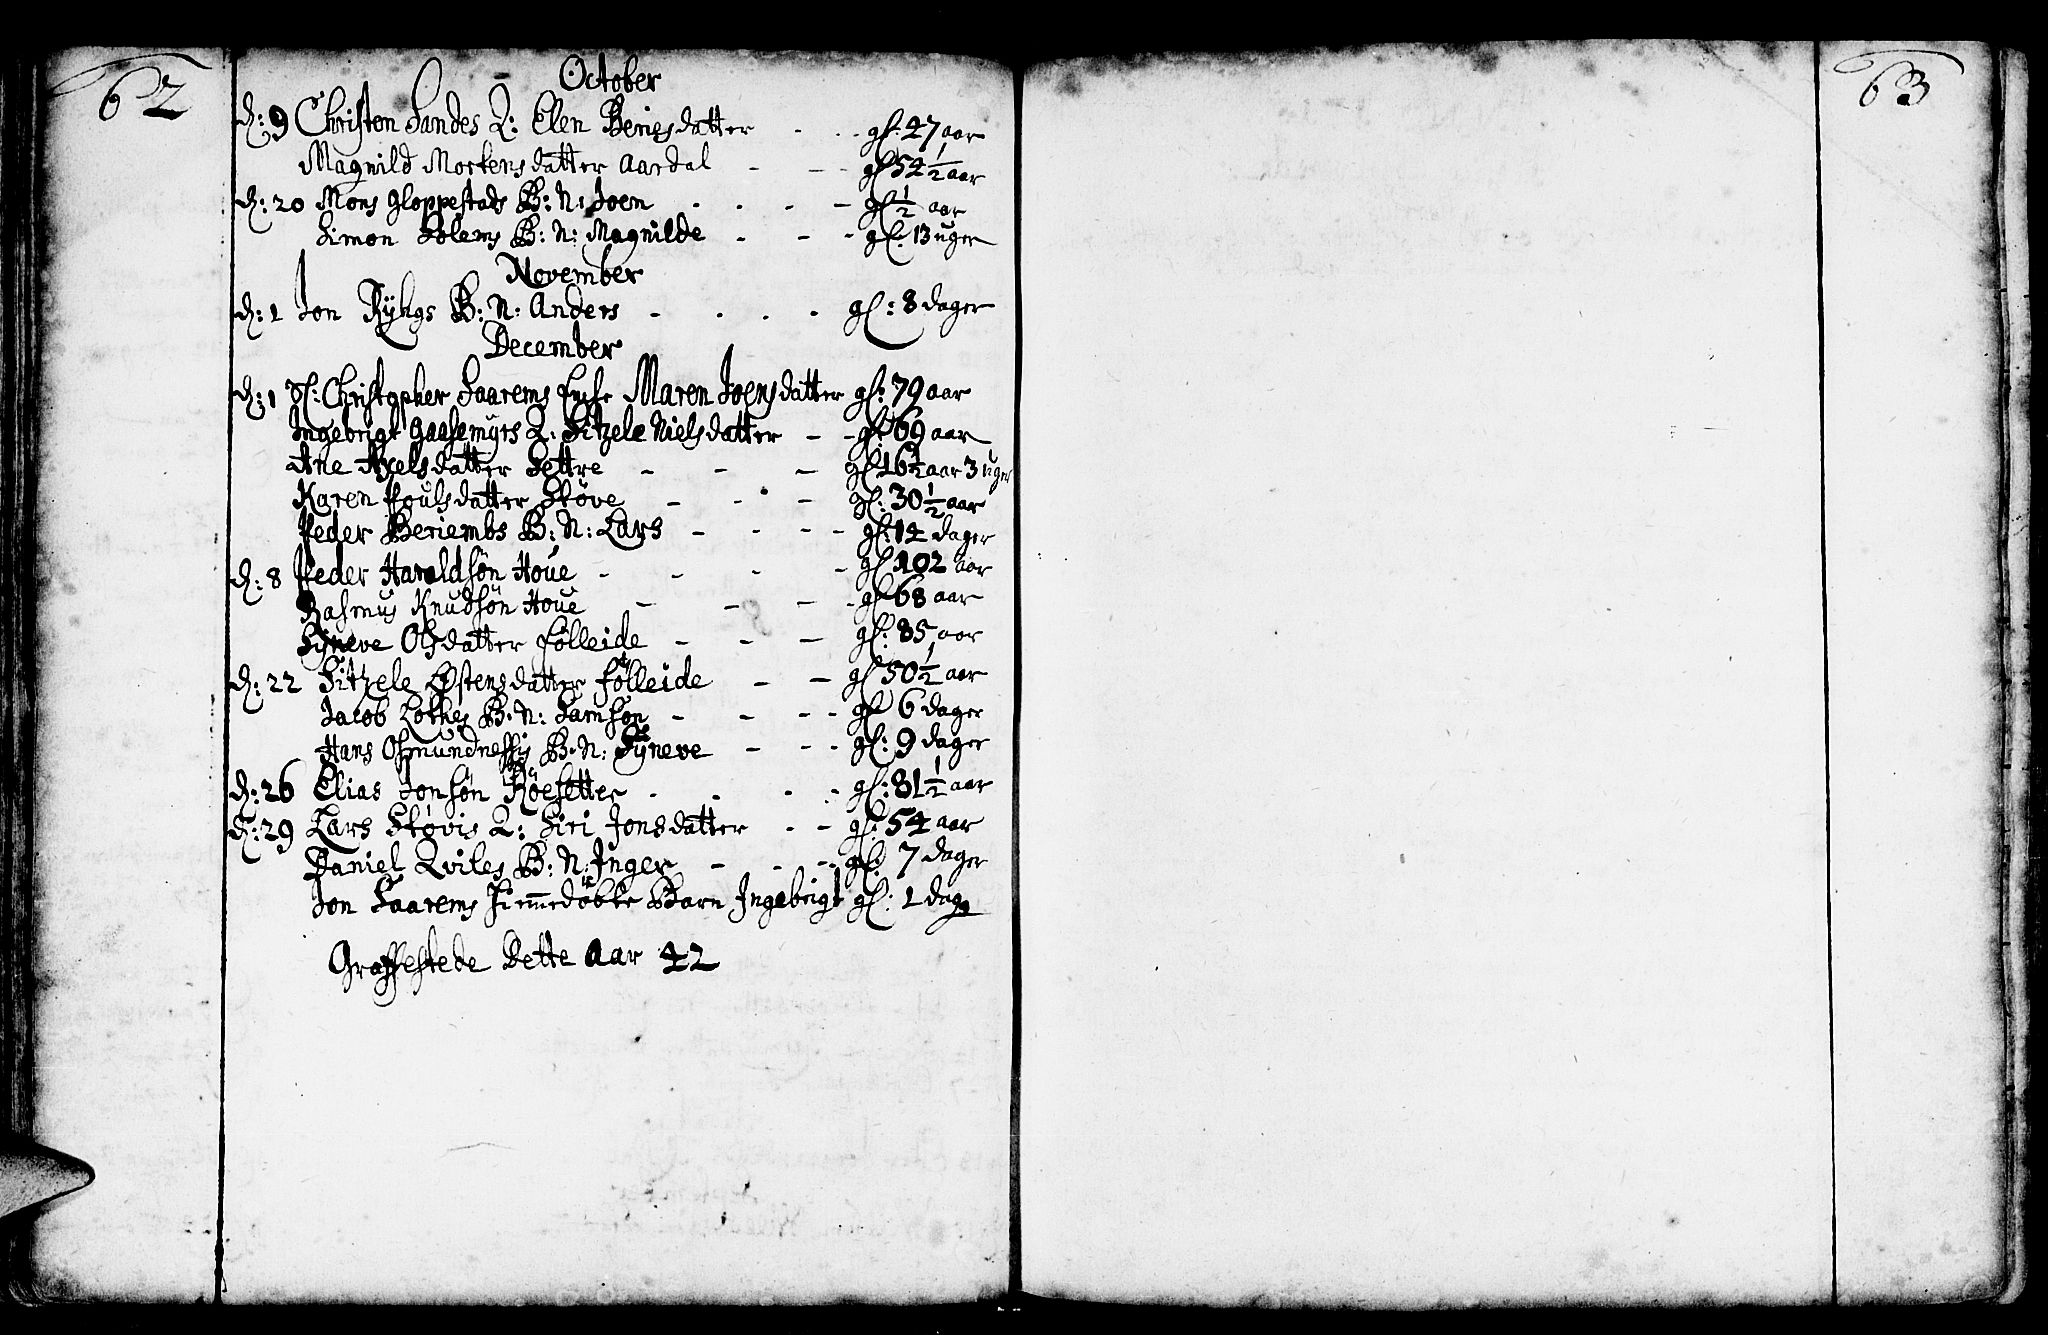 62
October
d: 9 Christen Sandes Q: Elen Beriesdatter - - - gl: 47 aar
Magnild Mortensdatter Aardal - - - gl 54 1/2 aar
d: 20 Mons Gloppestads B: N: Joen - - - - gl 1/2 aar
Simon Solems B: N: Magnilde - - - gl: 13 uger
November
d: 1 Jon Rÿhgs B: N: Anders - - - - gl: 8 dager
December
d: 1 Sl: Christopher Saarems Enche Maren Joensdatter gl: 79 aar
Ingebrigt Gaasemÿrs Q: Sitzele Nielsdatter - - gl 69 aar
Ane Axelsdatter Settre - - - gl 16 1/2 aar 3 uger
Karen Poulsdatter Støve - - - - gl: 30 1/2 aar
Peder Beriembs B: N: Lars - - - - gl: 14 dager
d: 8 Peder Haraldsön Houe - - - - gl 102 aar
Rasmus Knudsön Houe - - - - gl 68 aar
Sÿneve Olsdatter Følleide - - - gl: 85 aar
d: 22 Sitzele Østensdatter Følleide - - gl 50 1/2 aar
Jacob Lothes B: N: Samson - - - - gl 6 dager
Hans Osmundnessis B: N: Sÿneve - - - gl: 9 dager
d: 26 Elias Jonsön Röesetter - - - - gl: 81 1/2 aar
d: 29 Lars Støvis Q: Siri Jonsdatter - - gl: 54 aar
Daniel Qviles B: N: Inger - - - - gl: 7 dager
Jon Saarems Hiemmedøbte Barn Ingebrigt gl: 1 dag
Graffestede Dette Aar 42
63